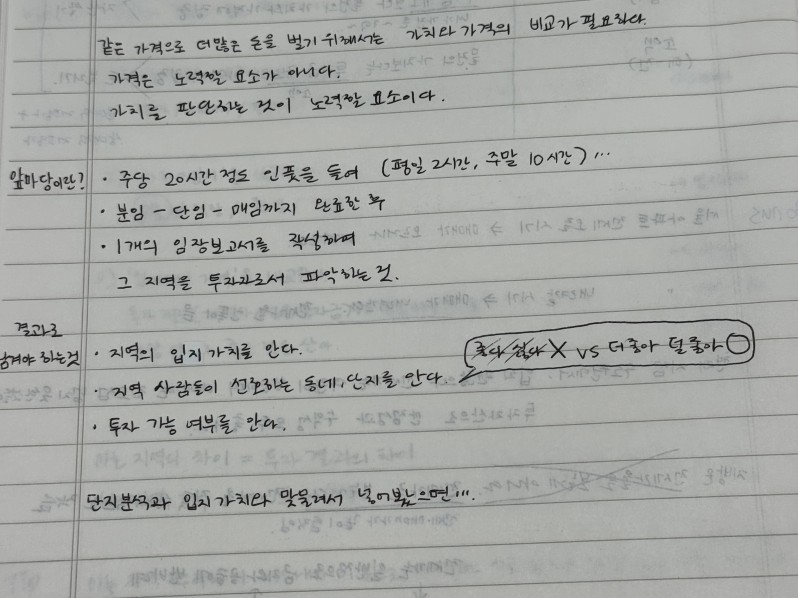 같은 가격으로 더많은 돈을 벌기 위해서는 가치와 가격의 비교가 필요하다.
가격은 노력할 요소가 아니다.
가치를 판단하는 것이 노력할 요소이다.
앞마당이란? · 주당 20시간 정도 인풋을 들여 (평일 2시간, 주말 10시간)…
· 분임 – 단임 – 매임까지 완료한 후
· 1개의 임장보고서를 작성하며
그 지역을 투자자로서 파악하는 것.
결과로
남겨야 하는것 · 지역의 입지 가치를 안다.
좋다 싫다 X vs 더좋아 덜좋아 ○
· 지역 사람들이 선호하는 동네, 단지를 안다.
· 투자 가능 여부를 안다.
단지분석과 입지가치와 맞물려서 넣어봤으면…